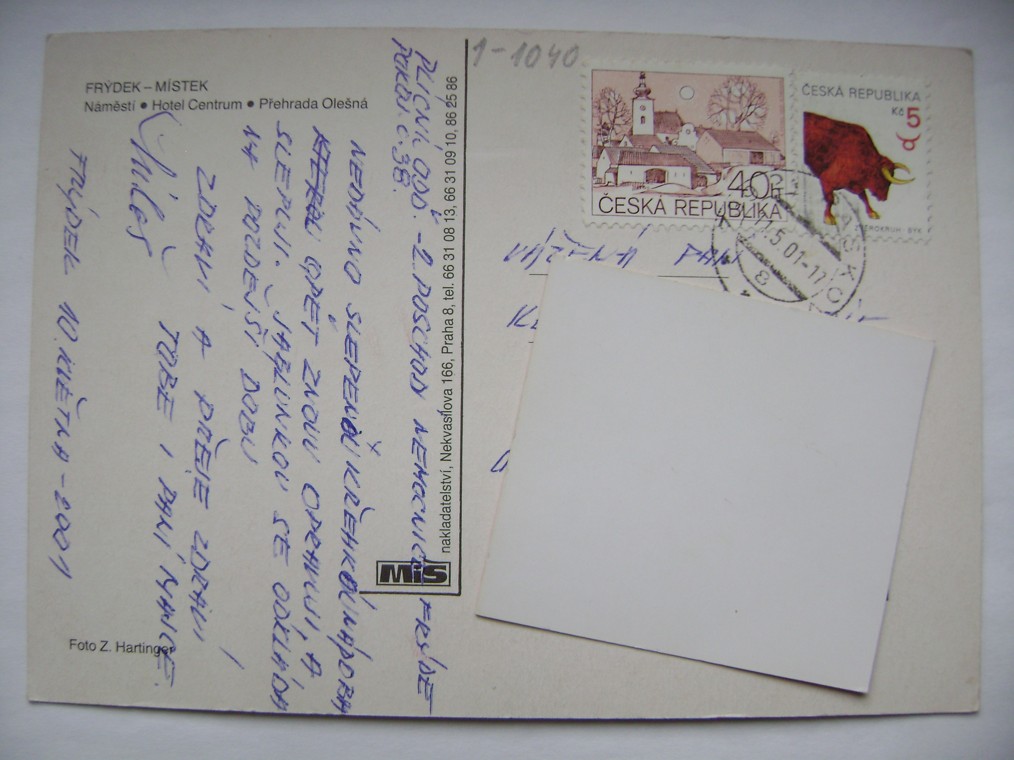 FRÝDEK – MÍSTEK
Náměstí ● Hotel Centrum ● Přehrada Olešná
PLICNÍ ODD. - 2. POSCHODÍ NEMOCNICE FRÝDE
POKOJ Č. 38
NEDÁVNO SLEPENOU KŘEHKOU NÁDOBA
OPĚT ZNOVU OPRAVUJI, A
SLEPUJI. ŠÁLINKOU SE ODKLÁDÁ
NA POZDĚJŠÍ DOBU
ZDRAVÍ A PŘEJE ZDRAVÍ
TOBĚ I PANÍ
Miloš
FRÝDEK 10. KVĚTNA - 2001
Foto Z. Hartinger
nakladatelství, Nekvasilova 166, Praha 8, tel. 66 31 08 13, 66 31 09 10, 86 25 86
MiS
1-1040
40 h
ČESKÁ REPUBLIKA
ČESKÁ REPUBLIKA
Kč 5
ZVĚROKRUH - BÝK
11.5.01-17
8
VÁŽENÝ PAN